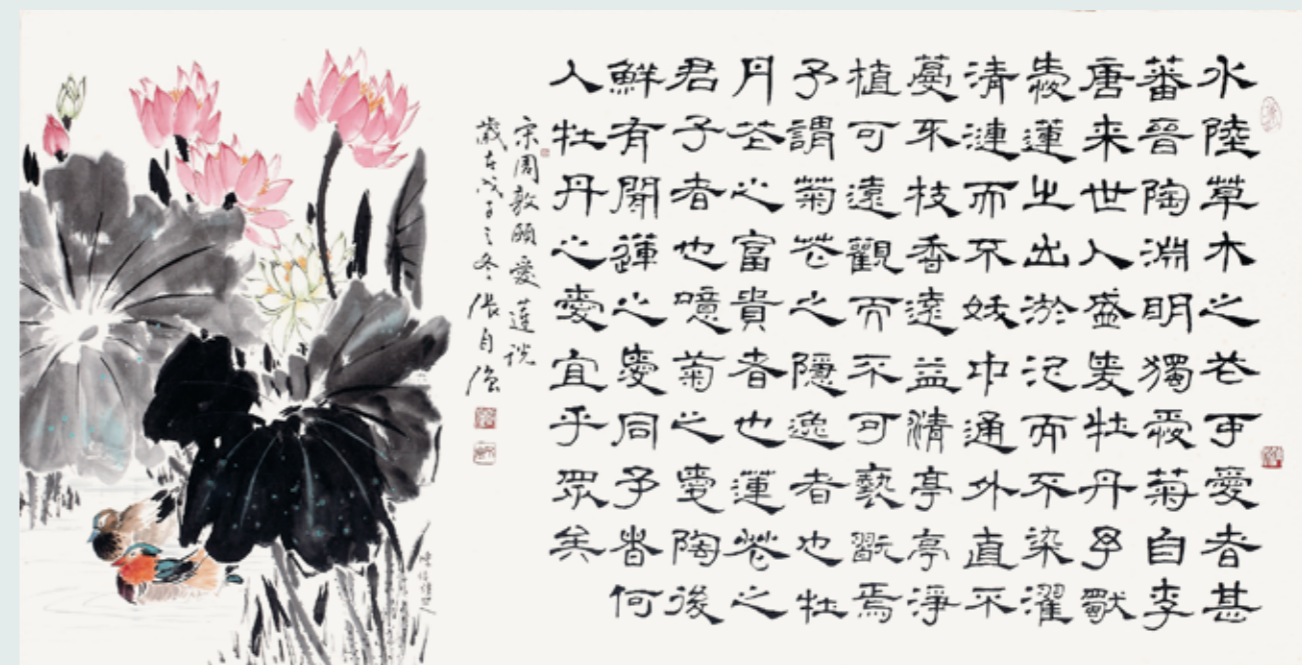 水陸草木之花可愛者甚
蕃晉陶淵明獨愛菊自李
唐来世人盛愛牡丹予獨
愛蓮之出淤泥而不染濯
清漣而不妖中通外直不
蔓不枝香遠益清亭亭淨
植可遠觀而不可褻翫焉
予謂菊花之隱逸者也牡
丹花之富貴者也蓮花之
君子者也噫菊之愛陶後
鮮有聞蓮之愛同予者何
人牡丹之愛宜乎眾矣
宋周敦頤愛蓮說
歲在戊子之冬張自強